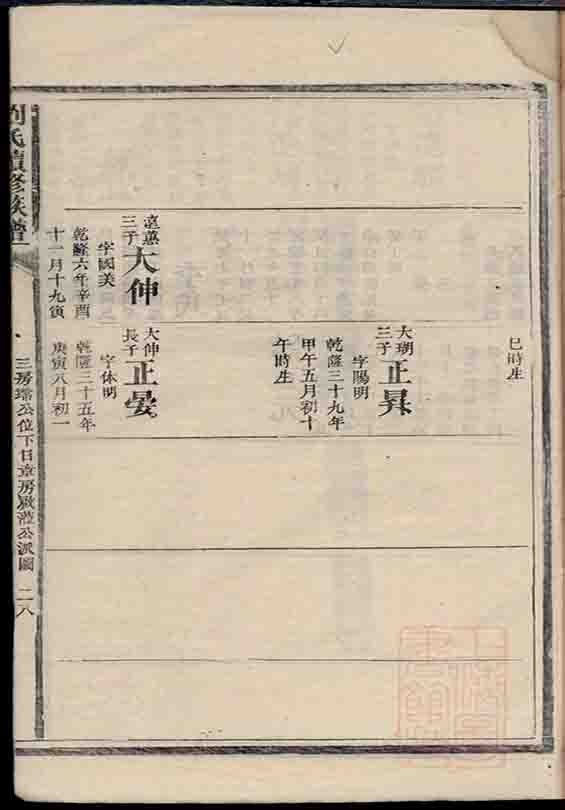 巳時生
大瑚
三子
正昇
字陽明
乾隆二十九年
甲午五月初十
午時生
遠蕙
三子
大伸
字國美
乾隆六年辛酉
十一月十九寅
大伸
長子
正晏
字休明
乾隆三十五年
庚寅八月初一
劉氏續修族譜
三房瑞公位下日章房徽蒞公派圖 二八